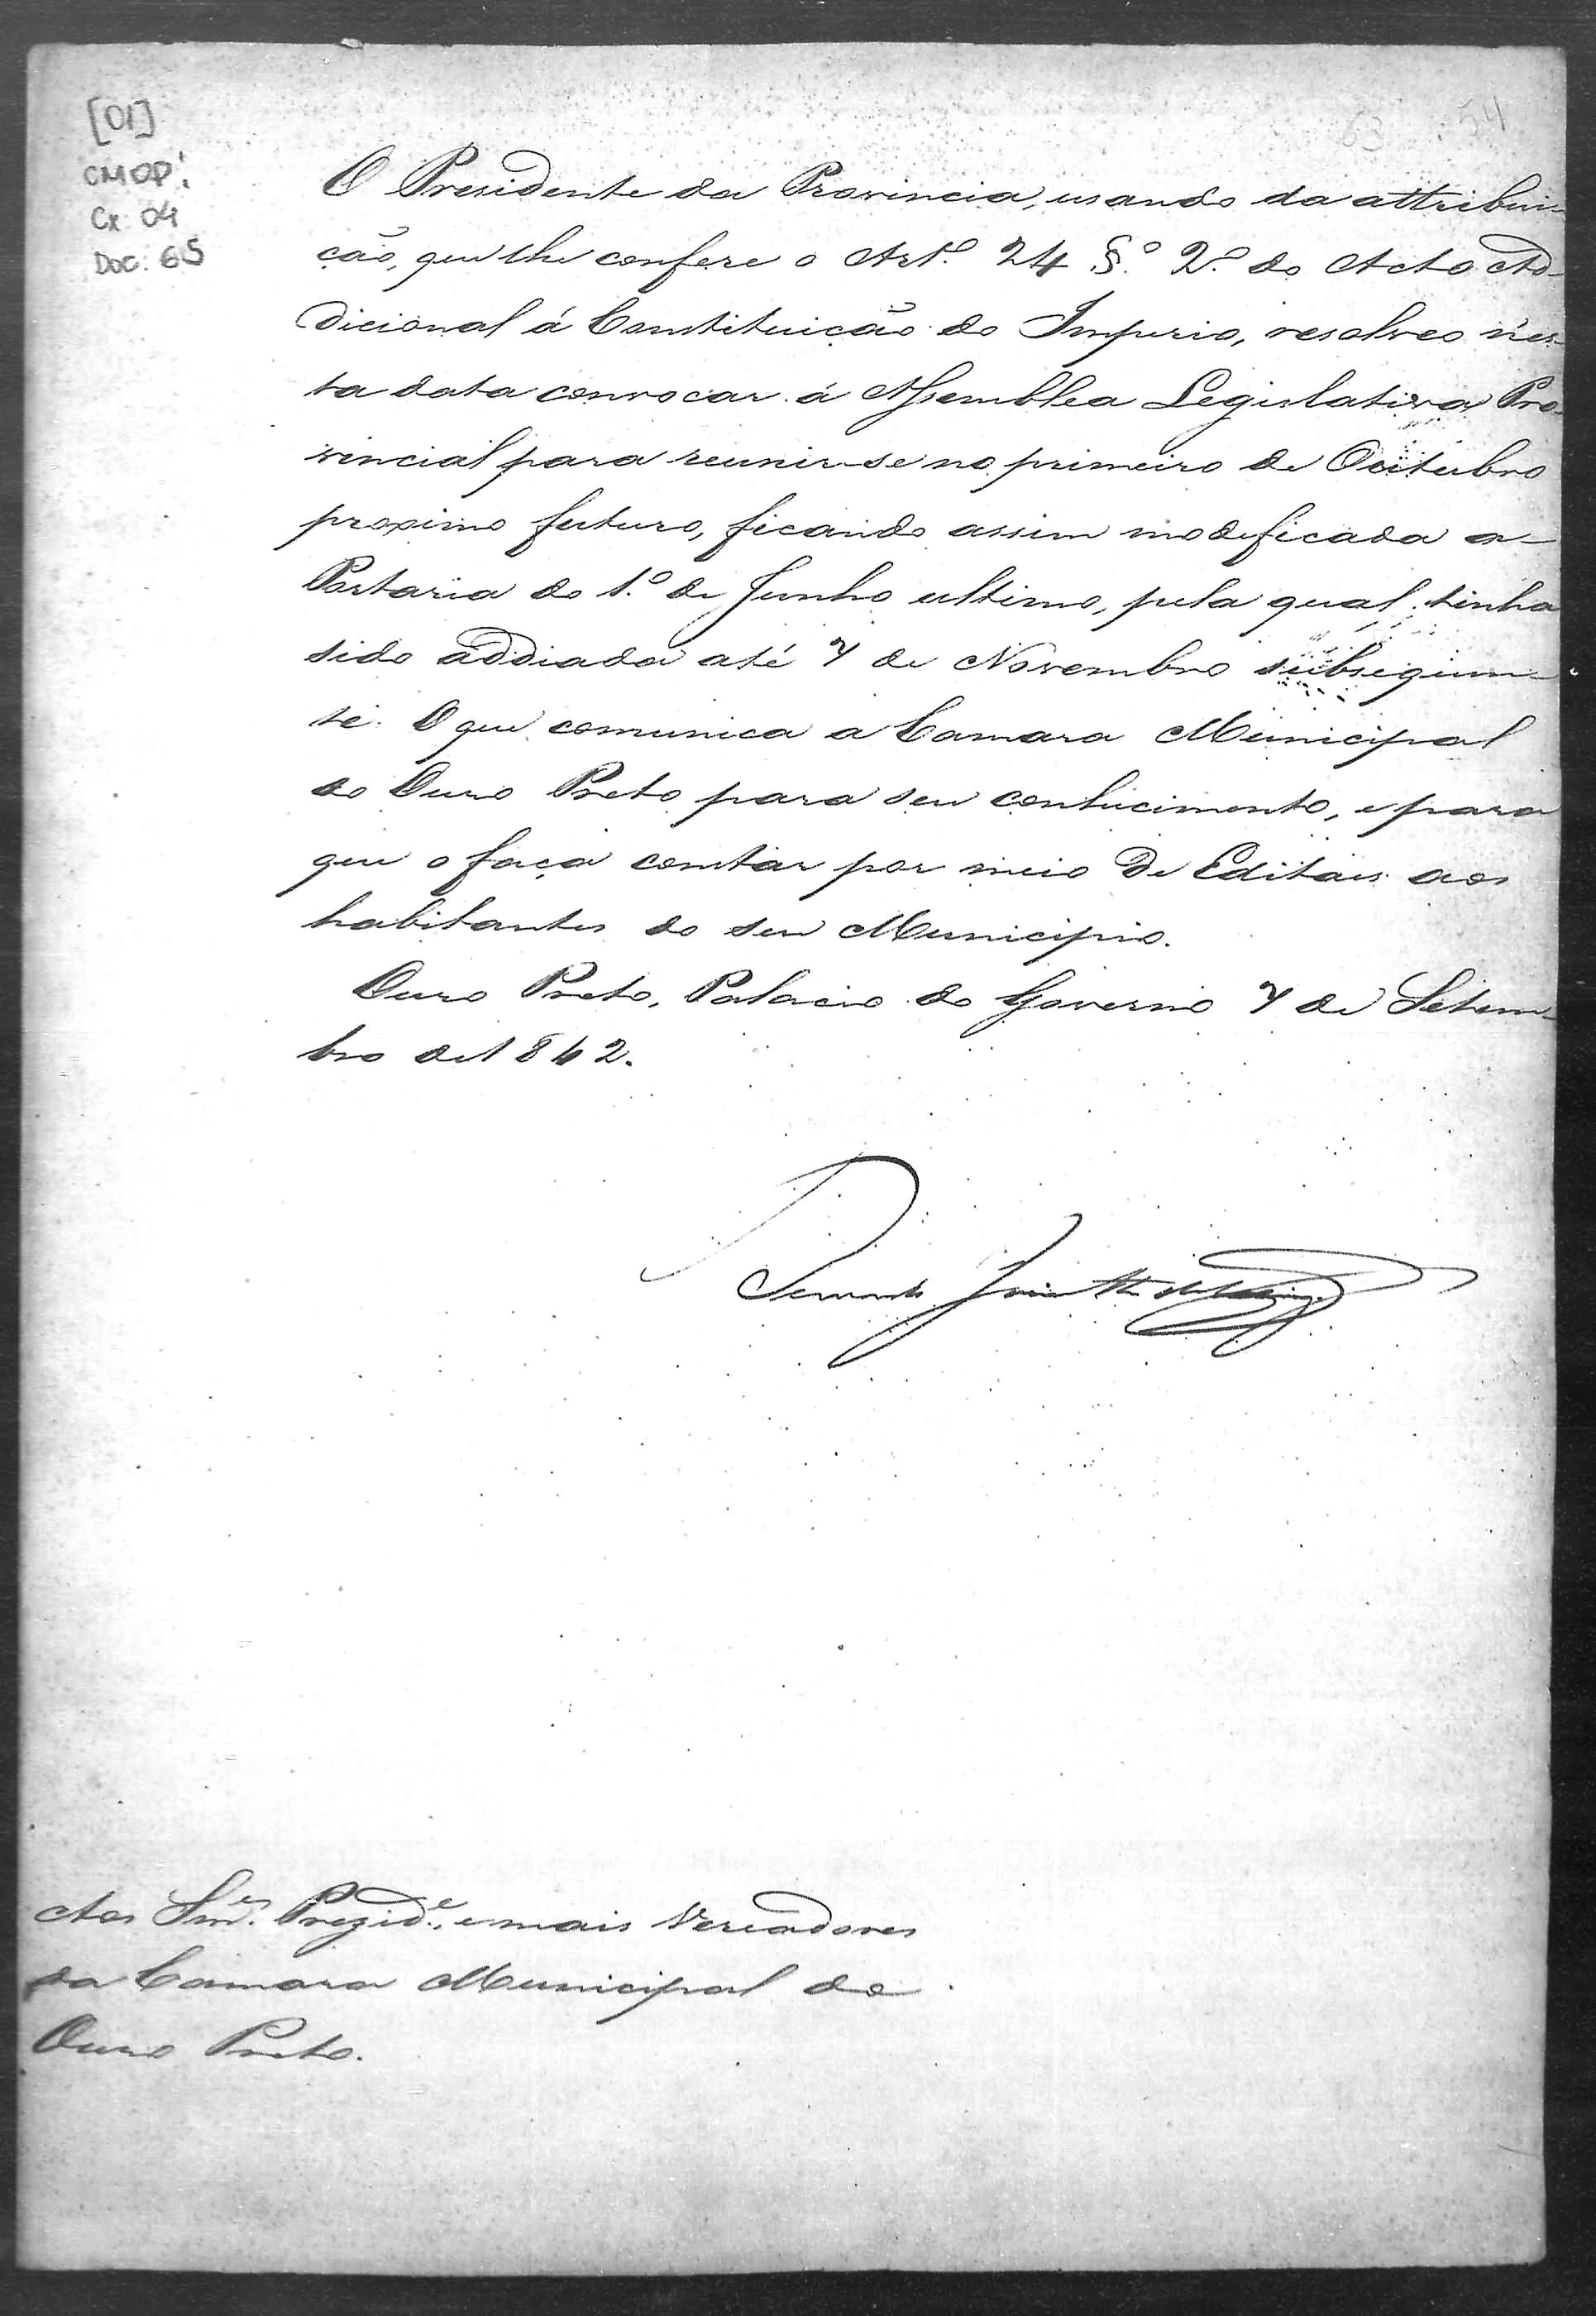 [01]
CMOP
Cx: 04
Doc: 65
63 54
O Presidente da Provincia, usando da attribui-
ção, que lhe confere o Art.º 24 §.º 2.º do Acto Ad-
dicional á Constituição do Imperio, resolveo nes-
ta data convocar á Assemblea Legislativa Pro-
vincial para reunir-se no primeiro de Outubro
proximo futuro, ficando assim modificada a
Portaria do 1.º de Junho ultimo, pela qual tinha
sido addiada até 7 de Novembro subseguin-
te. O que comunica a Camara Municipal
do Ouro Preto para seu conhecimento, e para
que o faça constar por meio de Editaes aos
habitantes do seu Municipio.
Ouro Preto, Palacio do Governo 7 de Setem-
bro de 1842.
Aos Snr.es Prezid.e, e mais Vereadores
da Camara Municipal do
Ouro Preto.